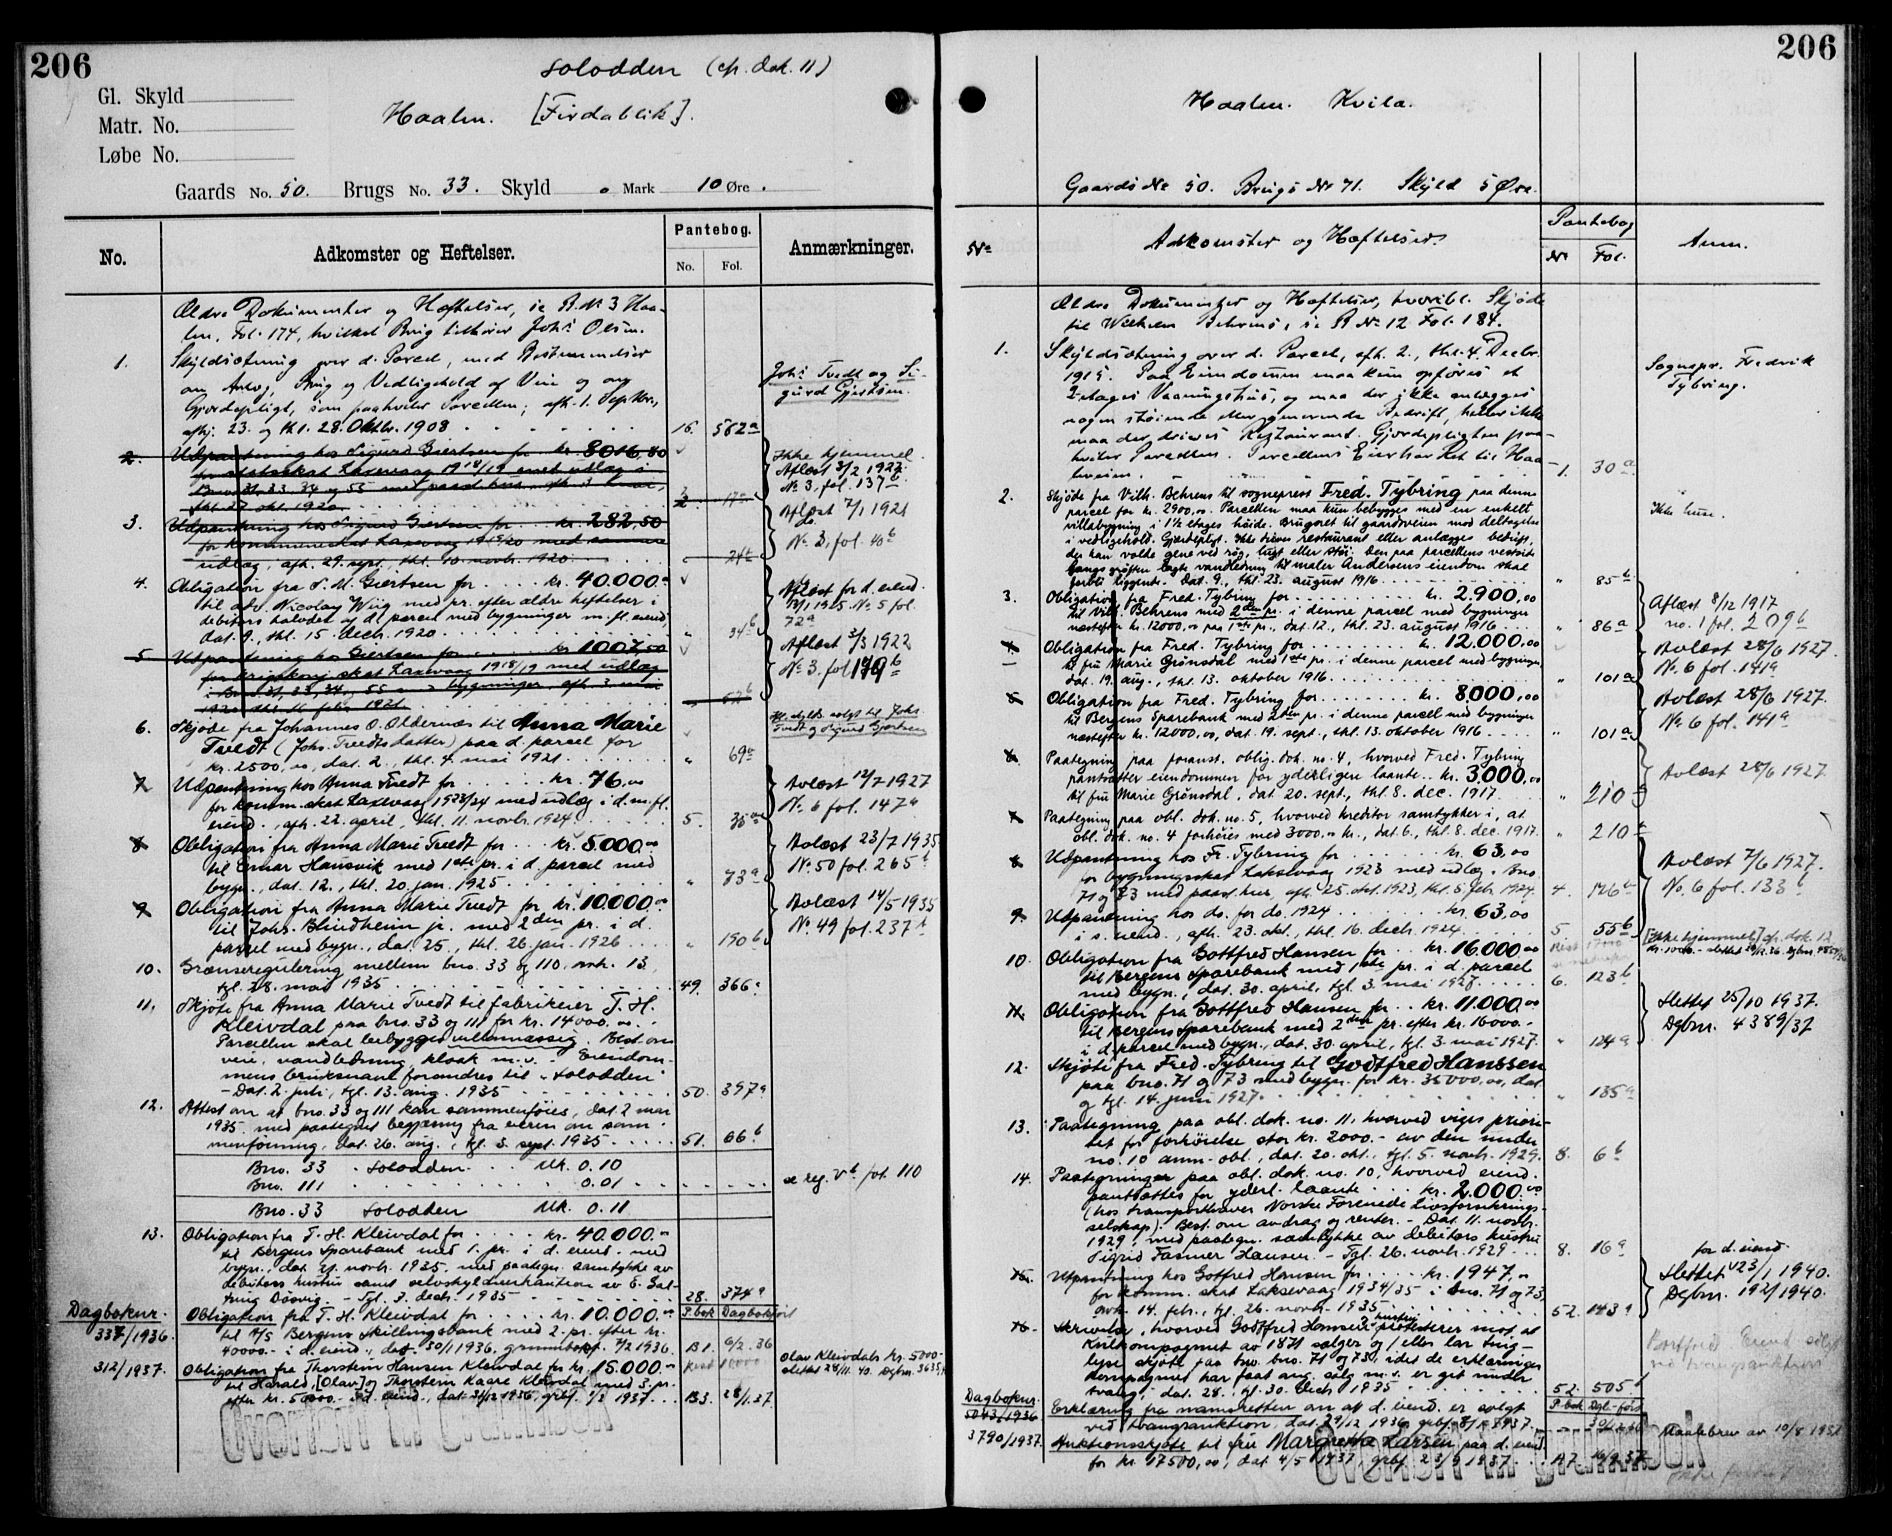 206
Solodden (cfr. dok. 11)
Gl. Skyld
Haalen. [Firdablik].
Matr. No.
Løbe No.
Gaards No. 50. Brugs No. 33. Skyld 0 Mark 10 Øre.
No. Adkomster og Heftelser. Pantebog. No. Fol. Anmærkninger.
Ældre Dokumenter og Heftelser, se B.No 3 Haa-
len, Fol. 174, hvilket Brug tilhører Johs Olsen.
1. Skyldsætning over d. Parcel, med Bestemmelser
om Anlæg, Brug og Vedligehold af Veie og om
Gjerdepligt, som paahviler Parcellen; afh. 1. Septbr.,
afhj. 23. og thl. 28. Oktbr. 1908 16. 582a
Johs Tvedt og Si-
gurd Gjertsen.
2. Udpantning hos Sigurd Giertsen for kr. 8016,80
for statsskat Laxevaag 1918/19 med udlæg i
Bno 31, 33, 34 og 55 med paast. hus, afh. 3. mai,
thl. 27. okt. 1920
Ikke hjemmel.
Aflæst 3/2 1922
No 3. fol. 137b
3. Udpantning hos Sigurd Giertsen for kr. 282,50
for kommuneskat Laxevaag 1919/20 med samme
udlæg, afh. 29. sept., thl. 10. novb. 1920 24a
Aflæst 7/1 1921
No 3, fol. 40b
4. Obligation fra S. M. Giertsen for kr. 40.000
til adv. Nicolay Wiig med pr. efter ældre heftelser i
debitors halvdel af d. parcel med bygninger m. fl. eiend.
dat. 9., thl. 15. decb. 1920 " 34b
Aflæst for d. eiend.
13/1 1925. No 5 fol.
72a
5. Udpantning hos Giertsen for kr. 1007,50
for krigskonj. skat Laxevaag 1918/19 med udlæg
i Bno 31, 33, 34, 55 bygninger, afh. 3. mai
1920, thl. 11. febr. 1921 52b
Aflæst 3/3 1922
No 3. fol 149b
6. Skjøde fra Johannes O. Oldernæs til Anna Marie
Tvedt (Johs. Tvedts datter) paa d. parcel for
kr. 2500,00, dat. 2., thl. 4. mai 1921 " 69a
Tvedt og Sigurd Gjertsen
7. Udpantning hos Anna Tvedt for kr. 76,00
for komm. skat Laxevaag 1923/24 med udlæg i d. m. fl.
eiend., afh. 22. april, thl. 11. novbr. 1924 5. 35a
Avlæst 12/7 1927
No. 6 fol. 147a
8. Obligation fra Anna Marie Tvedt for kr. 5.000,00
til Einar Hausvik med 1ste pr. i d. parcel med
bygn., dat. 12., thl. 20. jan. 1925 " 73a
Avlæst 23/7 1935
No. 50 fol. 265b
9. Obligation fra Anna Marie Tvedt for kr. 10.000,00
til Johs. Blindheim jr. med 2den pr. i d.
parcel med bygn., dat. 25., thl. 26. jan. 1926 " 190b
Avlæst 14/5 1935
No. 49 fol. 237b
10. Grænseregulering mellem bno. 33 og 110, avh. 13.,
tgl. 28. mai 1935 49. 366a
11. Skjøte fra Anna Marie Tvedt til fabrikeier T. H.
Kleivdal paa bno. 33 og 111 for kr. 14000,00.
Parcellen skal bebygges villamæssig. Best. om
veie, vandledning, kloak m. v. Eiendom-
mens bruksnavn forandres til "Solodden"
- Dat. 2. juli, tgl. 13. aug. 1935 50. 397a
12. Attest om at bno. 33 og 111 kan sammenføies, dat. 2 mai
1935, med paategnet begjæring fra eieren om sam-
menføining, dat. 26. aug., tgl. 3. sept. 1935 51. 66b
Bno. 33 Solodden Mk. 0.10
Bno. 111 0.01
se reg. Vb fol. 110
Bno. 33 Solodden Mk. 0.11
13. Obligation fra T. H. Kleivdal for kr. 40.000,00
til Bergens Sparebank med 1. pr. i d. eiend. med
bygn., dat. 21. novb. 1935, med paategn. samtykke av
debitors hustru samt selvskyldnerkaution av E. Sal-
- Tgl. 3. decb. 1935 28. 374a
Dagboknr. P. bok Dagbokført
337/1936. Obligation fra T. H. Kleivdal for kr. 10.000,00
til A/S Bergens Skillingsbank med 2. pr. efter kr.
40000.- i d. eiend., dat. 30/1 1936, grunnbokf. 7/2 1936. B1. 6/2. 36
312/1937. Obligation fra Thorstein Hansen Kleivdal for kr. 15.000,00
til Harald, [Olav] og Thorstein Kaare Kleivdal med 3. pr.
efter kr. 50000.- i d. eiend., dat. 31/12 1936, grbf. 1/2 1937 B3. 28/1. 37
Olav Kleivdals kr. 5000.-
slettet 28/11. 40. Dgbnr. 3635/40
Overført til grunnbok
206
Haalen. Kvila.
Gaards No 50. Brugs No 71. Skyld 5 Øre.
No Adkomster og Heftelser. Pantebog No Fol. Anm.
Ældre Dokumenter og Heftelser, hvoribl. Skjøde
til Wilhelm Behrens, se B No 12 Fol. 184.
1. Skyldsætning over d. Parcel, afh. 2., thl. 4. Decbr.
1915. Paa Eiendommen maa kun opføres et
2-etages Vaaningshus, og maa der ikke anlægges
nogen støiende eller generende Bedrift, heller ikke
maa der drives Restaurant. Gjerdepligten paa-
hviler Parcellen. Parcellens Eier har Ret til Haa-
leveien. 1. 30a
Sognepr. Fredrik
Tybring.
2. Skjøde fra Vilh. Behrens til sogneprest Fred. Tybring paa denne
parcel for kr. 2900,00. Parcellen maa kun bebygges med en enkelt
villabygning i 1½ etages høide. Brugsret til gaardsveien mod deltagelse
i vedligehold. Gjerdepligt. Ikke drives restaurant eller anlægges bedrift,
der kan volde gene ved røg, lugt eller støi. Den paa parcellens vestside
langs grøften lagte vandledning til maler Andersens eiendom skal
forbli liggende. Dat. 9., thl. 23. august 1916 " 85b
Ikke huse.
3. Obligation fra Fred. Tybring for kr. 2.900,00
til Vilh. Behrens med 2den pr. i denne parcel med bygninger
næstefter kr. 12000,00 paa 1ste pr., dat. 12., thl. 23. august 1916 " 86a
Aflæst 8/12 1917
no. 1 fol. 209b
4. Obligation fra Fred. Tybring for kr. 12.000,00
til fru Marie Grønsdal med 1ste pr. i denne parcel med bygninger,
dat. 19. aug., thl. 13. oktober 1916 " 101a
Avlæst 28/6 1927.
No. 6 fol. 141a
5. Obligation fra Fred. Tybring for kr. 8.000,00
til Bergens Sparebank med 2den pr. i denne parcel med bygninger
næstefter kr. 12000,00, dat. 19. sept., thl. 13. oktober 1916 " 101a
Avlæst 28/6 1927.
No. 6 fol. 141a
6. Paategning paa foranst. oblig. dok. no. 4, hvorved Fred. Tybring
pantsætter eiendommen for yderligere laante kr. 3.000,00
til fru Marie Grønsdal, dat. 20. sept., thl. 8. dec. 1917. " 210
Avlæst 28/6 1927.
7. Paategning paa obl. dok. no. 5, hvorved kreditor samtykker i, at
obl. dok. no. 4 forhøies med 3000,00 kr., dat. 6., thl. 8. dec. 1917. " 210
8. Udpantning hos Fr. Tybring for kr. 63,00
for bygningsskat Laksevaag 1923 med udlæg i Bno.
71 og 73 med paast. hus, afh. 25. okt. 1923, thl. 5. feb. 1924 4. 126b
Avlæst 7/6 1927.
No. 6 fol. 133b
9. Udpantning hos do. for do. 1924 kr. 63,00
i s. eiend., afh. 23. okt., thl. 16. decb. 1924 5. 55b
10. Obligation fra Gottfred Hansen for kr. 16.000,00
til Bergens Sparebank med 1ste pr. i d. parcel
med bygn., dat. 30. april, tgl. 3. mai 1927 6. 123b
[Ikke hjemmel] cfr. dok. 12
11. Obligation fra Gottfred Hansen for kr. 11.000,00
til Bergens Sparebank med 2den pr. efter kr. 16000.-
i d. parcel med bygn., dat. 30. april, tgl. 3. mai 1927 " 124a
Slettet 25/10 1937.
Dgbnr. 4389/37
12. Skjøte fra Fred. Tybring til Godtfred Hanssen
paa bno. 71 og 73 med bygn. for kr. 35000,00, dat.
og tgl. 14. juni 1927. " 135a
13. Paategning paa obl. dok. no. 11, hvorved viges priori-
tet for forhøielse stor kr. 2000.- av den under
no. 10 anm. obl., dat. 20. okt., tgl. 5. novb. 1929. 8. 6b
14. Paategninger paa obl. dok. no. 10, hvorved eiend.
pantsættes for yderl. laante kr. 2.000,00
(hos transporthaver Norske Forenede Livsforsikrings-
selskap). Best. om avdrag og renter. - Dat. 11. novb.
1929, med paategn. samtykke av debitors hustru
Sigrid Fasmer Hansen. - Tgl. 26. novb. 1929 8. 16a
15. Utpantning hos Gotfred Hansen for kr. 1947,00
for komm. skat Laksevaag 1934/35 i bno. 71 og 73,
avh. 14. febr., tgl. 26. novb. 1935 52. 143a
for d. eiend.
Slettet 23/1 1940.
Dgbnr. 192/1940.
16. Skrivelse, hvorved Godtfred Hansens hustru protesterer mot at
Kulkompagniet av 1871 selger og/eller lar ting-
lyse skjøte paa bno. 71 og 73, idet de erklæringer
kompagniet har faat ang. salg m. v. er git under
tvang, dat. 28., tgl. 30. decb. 1935 52. 505b
Dagboknr. P. bok Dgb.-ført
5043/1936 Erklæring fra namsretten om at d. eiend. er solgt
ved tvangsauktion, dat. 29/12 1936, grbf. 8/1 1937. 30/12.36
3790/1937. Auktionsskjøte til fru Margrethe Larsen paa d. eiend.
for kr. 17500,00, dat. 4/5 1937, grbf. 23/9 1937 A7. 16/9.37
Maalebrev av 10/8 1951
Overført til grunnbok